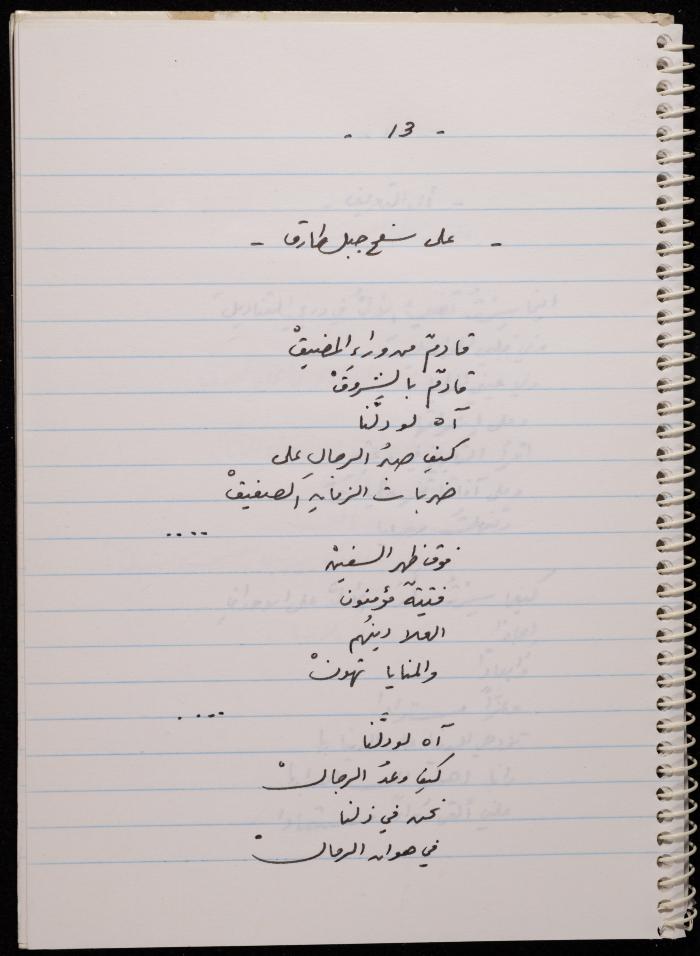 - 13 -
- على سفح جبل طارق -
قادمٌ من وراءِ المضيقْ
قادمٌ بالشروقْ
آه لو دلَّنا
كيف صبرُ الرجالِ على
ضربات الزمانِ الصفيقْ
....
فوق ظهر السفينْ
فتيةٌ مؤمنون
العلا دينُهم
والمنايا تهونْ
....
آه لو دلَّنا
كيف وعدُ الرجالْ
نحن في ذلنا
في هوان الرجالْ